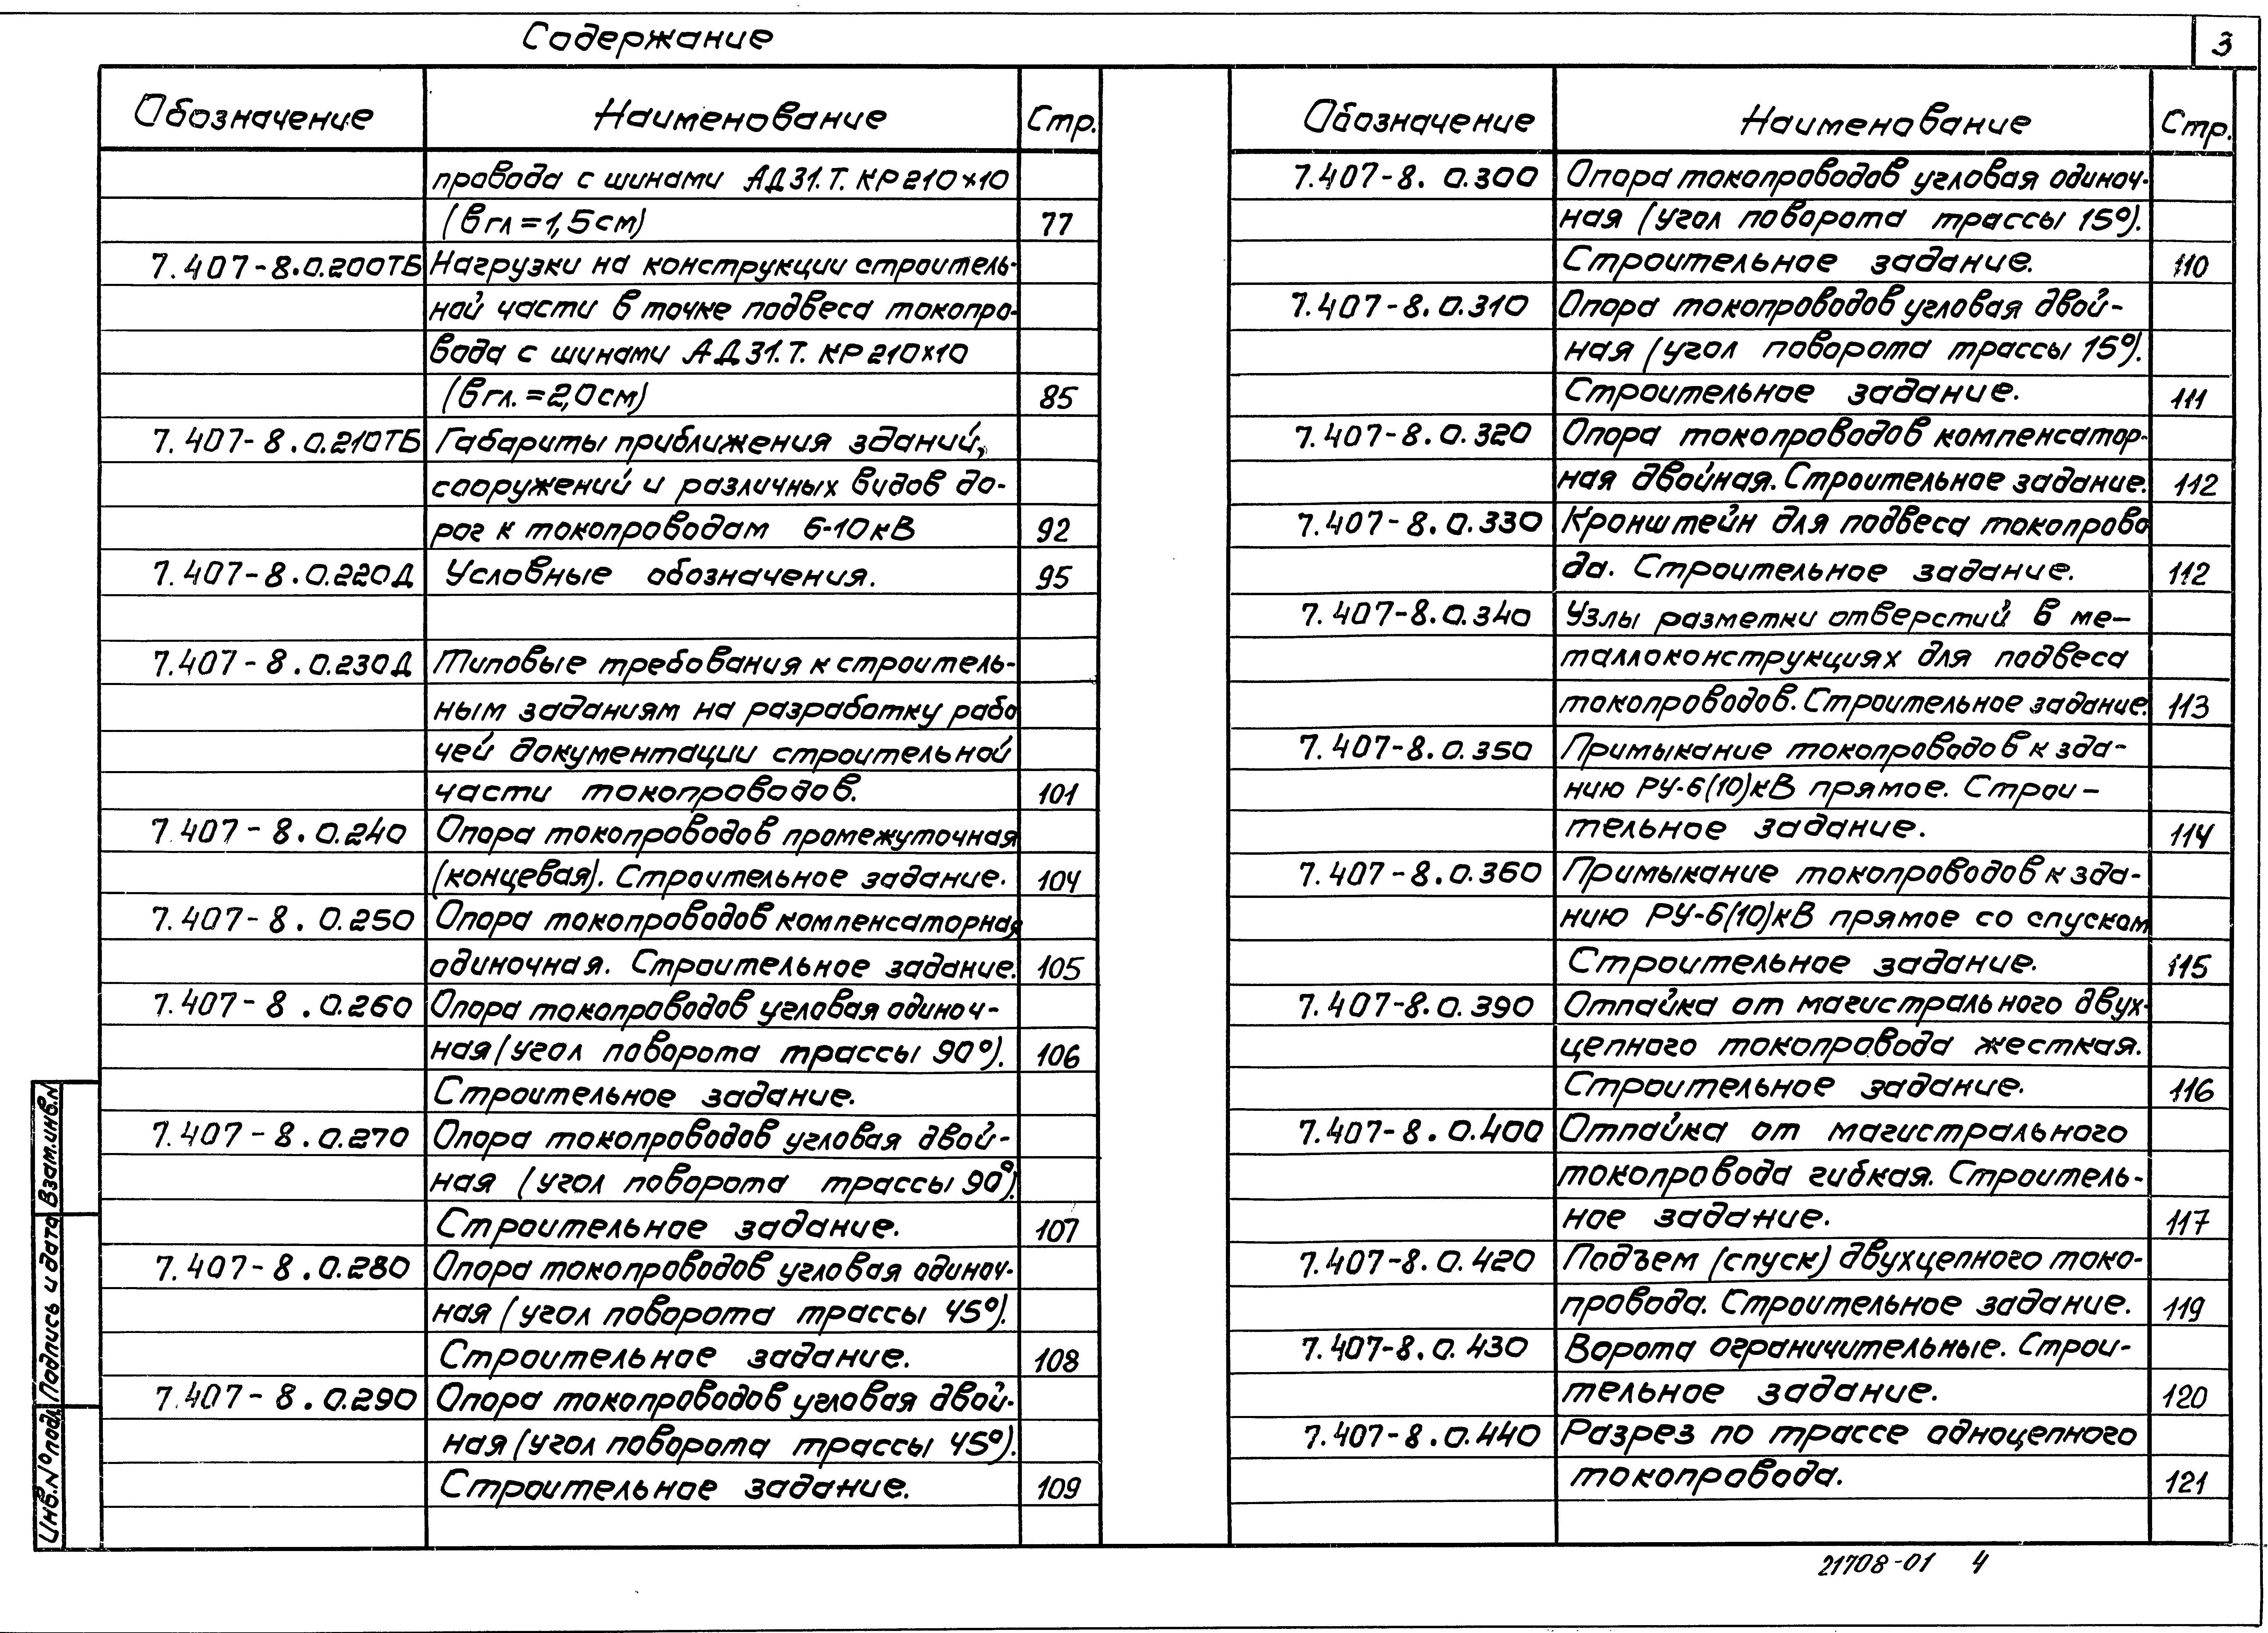 Содержание
3
Обозначение Наименование Стр.
провода с шинами АД31.Т. КР 210×10
(вгл = 1,5 см) 77
7.407-8.0.200ТБ Нагрузки на конструкции строитель-
ной части в точке подвеса токопро-
вода с шинами АД31.Т. КР 210×10
(вгл. = 2,0 см) 85
7.407-8.0.210ТБ Габариты приближения зданий,
сооружений и различных видов до-
рог к токопроводам 6-10 кВ 92
7.407-8.0.220Д Условные обозначения. 95
7.407-8.0.230Д Типовые требования к строитель-
ным заданиям на разработку рабо
чей документации строительной
части токопроводов. 101
7.407-8.0.240 Опора токопроводов промежуточная
(концевая). Строительное задание. 104
7.407-8.0.250 Опора токопроводов компенсаторная
одиночная. Строительное задание. 105
7.407-8.0.260 Опора токопроводов угловая одиноч-
ная (угол поворота трассы 90°). 106
Строительное задание.
7.407-8.0.270 Опора токопроводов угловая двой-
ная (угол поворота трассы 90°).
Строительное задание. 107
7.407-8.0.280 Опора токопроводов угловая одиноч-
ная (угол поворота трассы 45°).
Строительное задание. 108
7.407-8.0.290 Опора токопроводов угловая двой-
ная (угол поворота трассы 45°).
Строительное задание. 109
Обозначение Наименование Стр.
7.407-8.0.300 Опора токопроводов угловая одиноч-
ная (угол поворота трассы 15°).
Строительное задание. 110
7.407-8.0.310 Опора токопроводов угловая двой-
ная (угол поворота трассы 15°).
Строительное задание. 111
7.407-8.0.320 Опора токопроводов компенсатор-
ная двойная. Строительное задание. 112
7.407-8.0.330 Кронштейн для подвеса токопрово
да. Строительное задание. 112
7.407-8.0.340 Узлы разметки отверстий в ме-
таллоконструкциях для подвеса
токопроводов. Строительное задание. 113
7.407-8.0.350 Примыкание токопроводов к зда-
нию РУ-6(10)кВ прямое. Строи-
тельное задание. 114
7.407-8.0.360 Примыкание токопроводов к зда-
нию РУ-6(10)кВ прямое со спуском
Строительное задание. 115
7.407-8.0.390 Отпайка от магистрального двух-
цепного токопровода жесткая.
Строительное задание. 116
7.407-8.0.400 Отпайка от магистрального
токопровода гибкая. Строитель-
ное задание. 117
7.407-8.0.420 Подъем (спуск) двухцепного токо-
провода. Строительное задание. 119
7.407-8.0.430 Ворота ограничительные. Строи-
тельное задание. 120
7.407-8.0.440 Разрез по трассе одноцепного
токопровода. 121
Инв.№ подл. Подпись и дата Взам.инв.№
21708-01 4